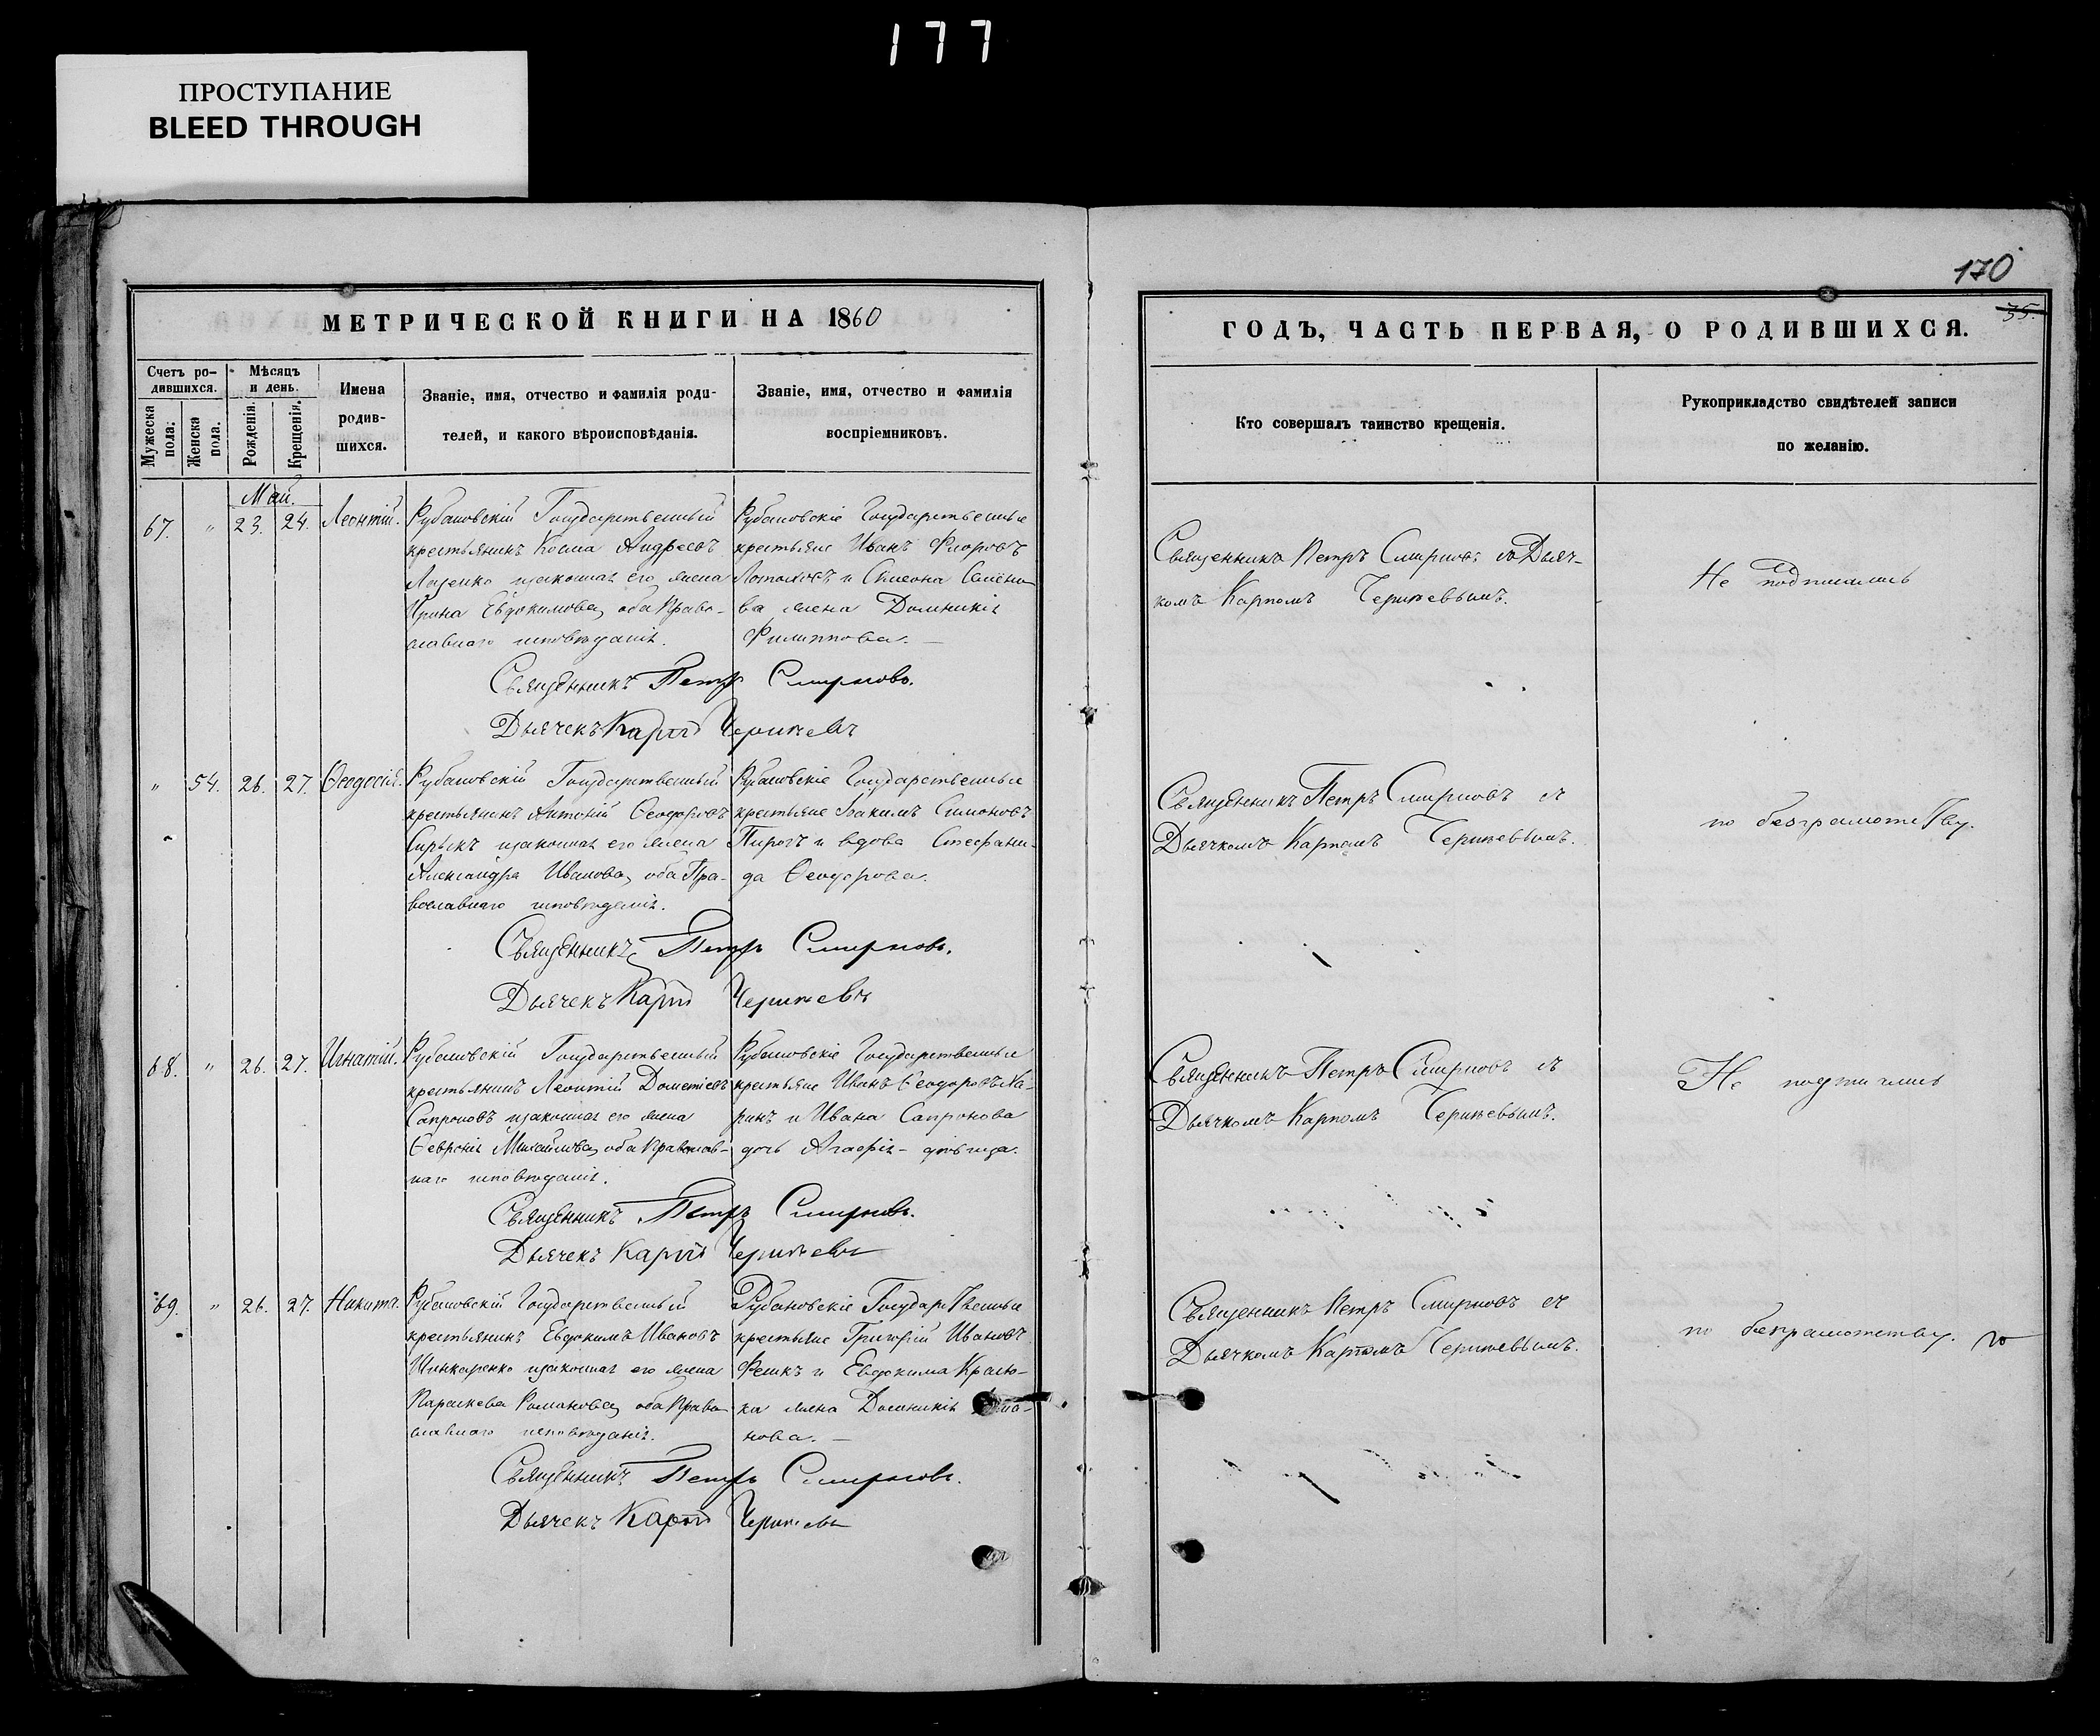 177
ПРОСТУПАНИЕ
BLEED THROUGH
170
35.
МЕТРИЧЕСКОЙ КНИГИ НА 1860
ГОДЪ, ЧАСТЬ ПЕРВАЯ, О РОДИВШИХСЯ.
Счетъ ро-
дившихся.
Мужеска пола.
Женска пола.
Мѣсяцъ
и день.
Рожденія.
Крещенія.
Имена
родив-
шихся.
Званіе, имя, отчество и фамилія роди-
телей, и какого вѣроисповѣданія.
Званіе, имя, отчество и фамилія
воспріемниковъ.
Кто совершалъ таинство крещенія.
Рукоприкладство свидѣтелей записи
по желанію.
Май.
67. " 23. 24. Леонтій.
Рубановскій Государственный
крестьянинъ Косма Андреевъ
законная его жена
Ирина Евдокимова, оба Право-
славнаго исповѣданія.
Рубановскіе Государственные
крестьяне Иванъ
и Симеона Семено-
ва жена Домникія
Филиппова.
Священникъ Петръ Смирновъ съ Дьяч-
комъ Карпомъ
Не подписались
Священникъ Петръ Смирновъ.
Дьячекъ Карпъ
" 54. 26. 27. Ѳеодосія.
Рубановскій Государственный
крестьянинъ Антоній Ѳеодоровъ
Сирыкъ и законная его жена
Александра Иванова, оба Пра-
вославнаго исповѣданія.
Рубановскіе Государственные
крестьяне Іоакимъ Симоновъ
Пирогъ и вдова Стефани-
да Ѳеодорова.
Священникъ Петръ Смирновъ съ
Дьячкомъ Карпомъ
по безграмотству.
Священникъ Петръ Смирновъ.
Дьячекъ Карпъ
68. " 26. 27. Игнатій.
Рубановскій Государственный
крестьянинъ Леонтій Дометіевъ
Сапроновъ и законная его жена
Ѳевронія Михайлова, оба Православ-
наго исповѣданія.
Рубановскіе Государственные
крестьяне Иванъ Ѳеодоровъ Ха-
ринъ и Ивана Сапронова
дочь Агафія - дѣвица.
Священникъ Петръ Смирновъ съ
Дьячкомъ Карпомъ
Не подписались
Священникъ Петръ Смирновъ.
Дьячекъ Карпъ
69. " 26. 27. Никита.
Рубановскій Государственный
крестьянинъ Евдокимъ Ивановъ
Шинкаренко и законная его жена
Параскева Романова, оба Право-
славнаго исповѣданія.
Рубановскіе Государственные
крестьяне Григорій Ивановъ
и Евдокима
жена Домникія
нова.
Священникъ Петръ Смирновъ съ
Дьячкомъ Карпомъ
по безграмотству.
Священникъ Петръ Смирновъ.
Дьячекъ Карпъ